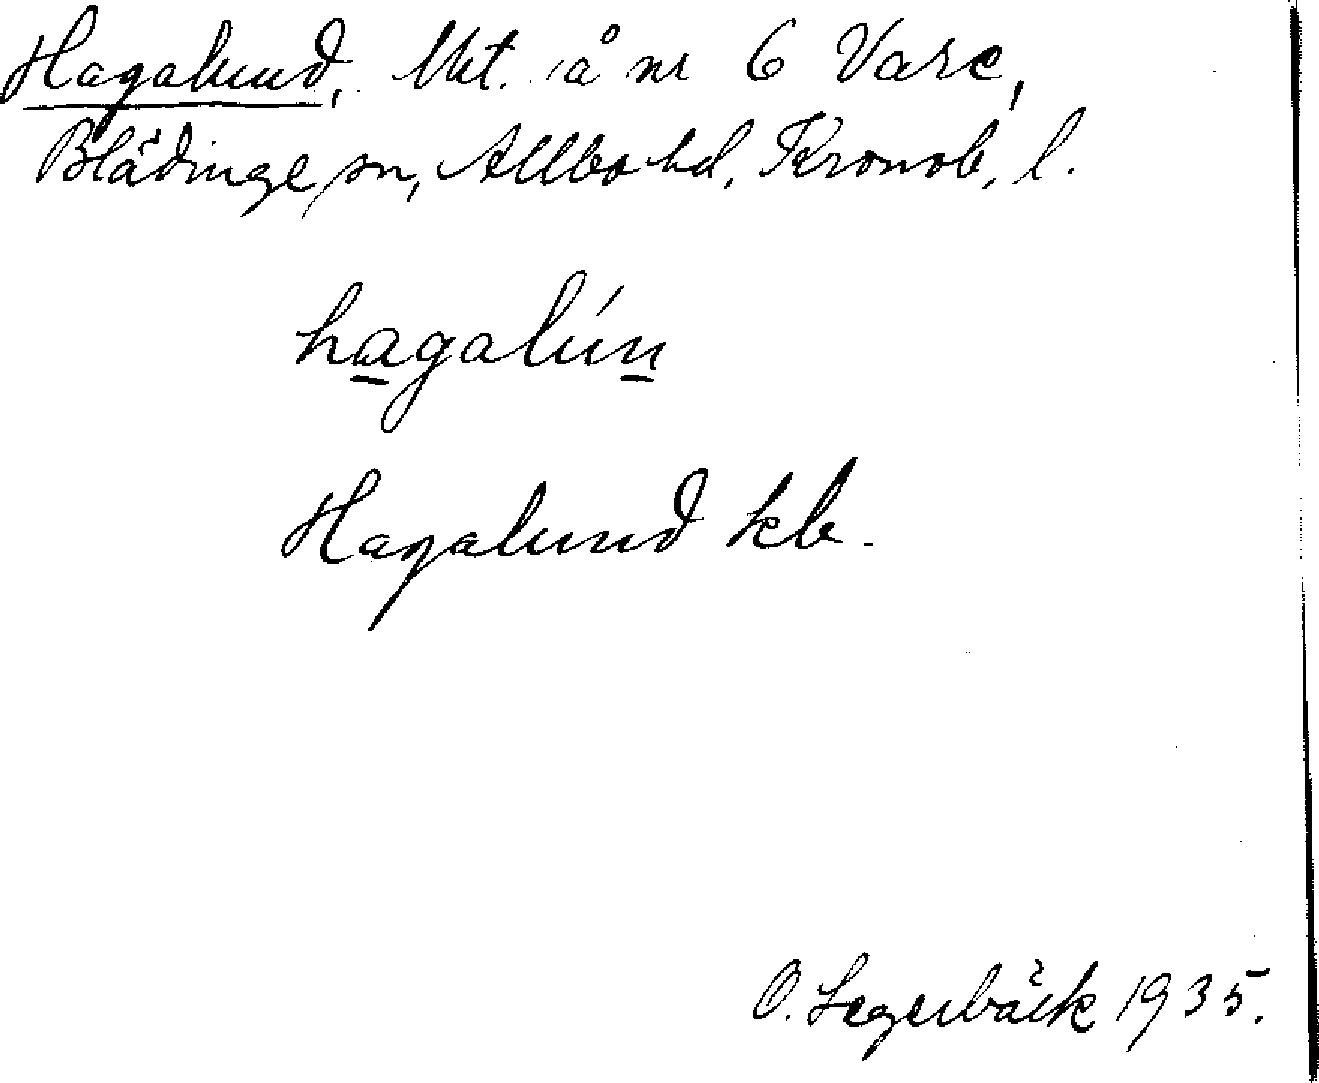 Hagalund, Utkt. å nr 6 Vare,
Blädinge sn, Allbo hd, Kronob. l.
hagalún
Hagalund kb.
O. Segerbäck 1935.